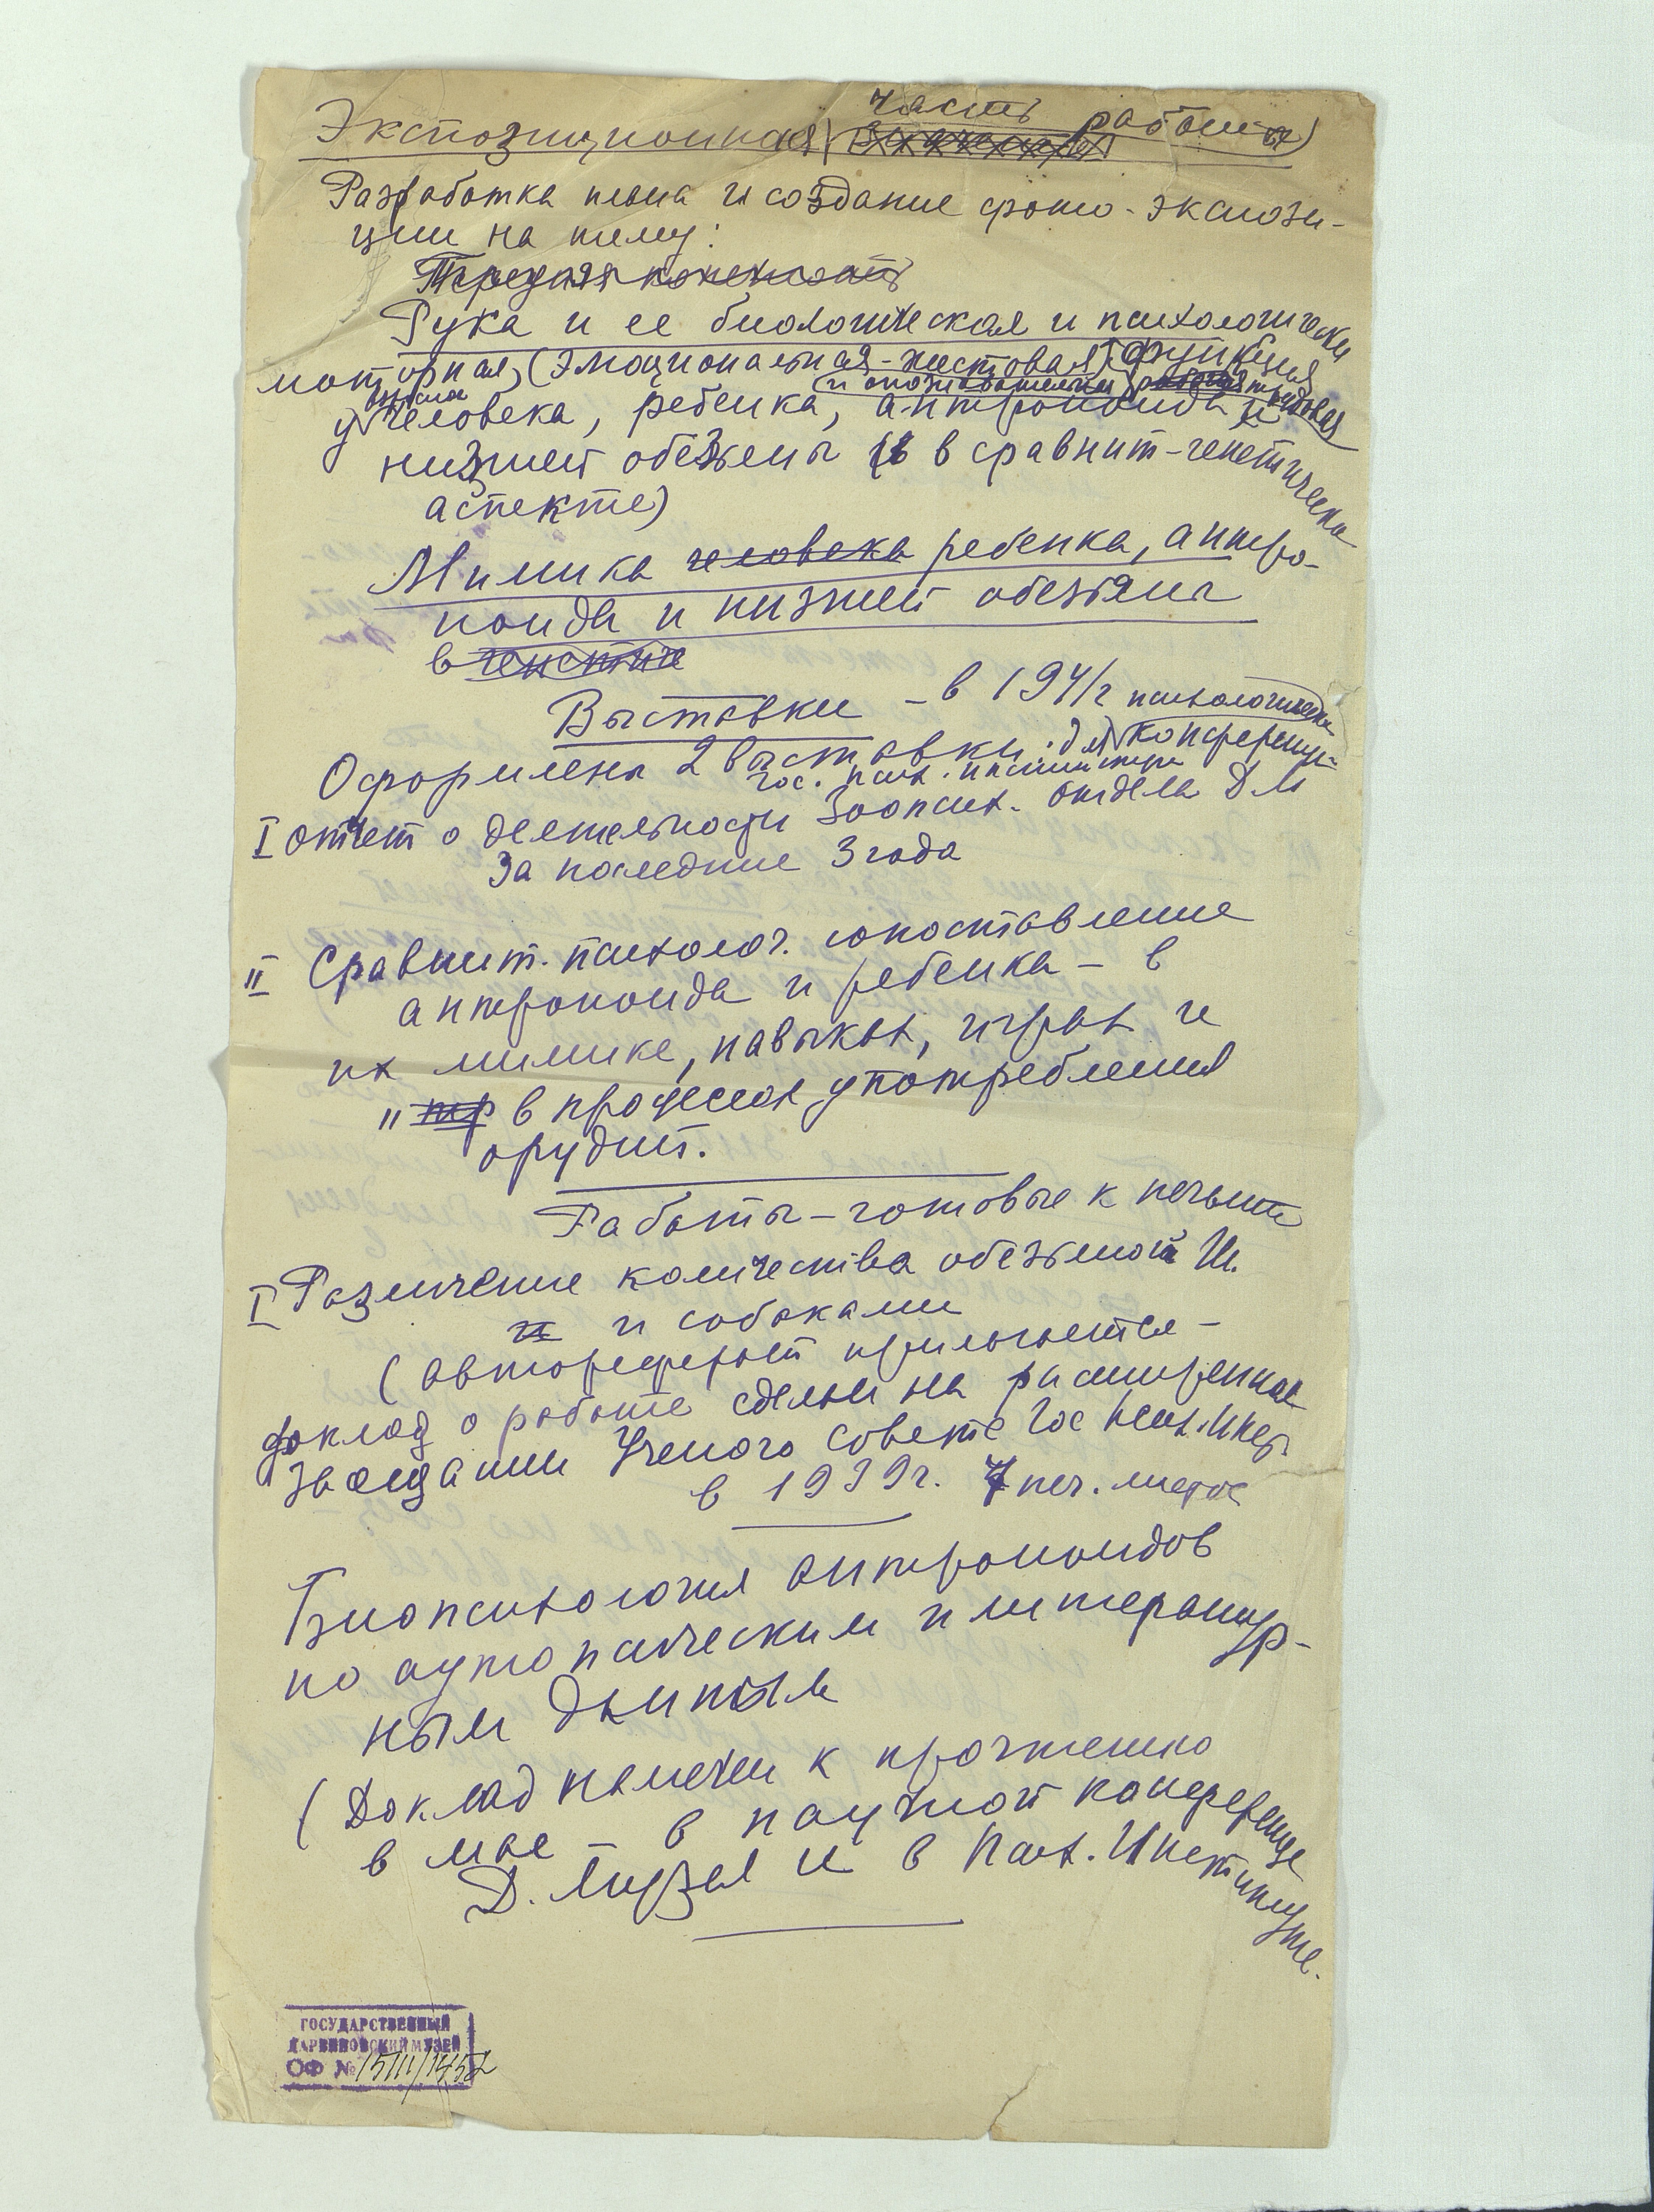 Экспозиционная часть работы)
Разработка плана и создание фото-экспози-
ции на тему:
Передняя конечность
Рука и ее биологическая и психологически
моторная, (эмоциональная-жестовая) функция
и опознавательная трудовая
у взрослого человека, ребенка, антропоида и
низшей обезьяны в сравнит-генетическом
аспекте)
Мимика человека ребенка, антро-
поида и низшей обезьяны
в генетич
Выставки – в 1941 г психологическ
Оформлены 2 выставки: для конференц.
гос. псих. института
I отчет о деятельности Зоопсих. отдела ДМ
за последние 3 года
II Сравнит. психолог. сопоставление
антропоида и ребенка – в
их мимике, навыках, играх и
" в процессах употребления
орудий.
Работы – готовые к печати
I Различение количества обезьяной М.
и и собаками
(автореферат прилагается –
доклад о работе сделан на расширенном
заседании Ученого совета Гос Псих. Инст.
в 1939 г. 7 печ. листов
Биопсихология антропоидов
по аутопсическим и литератур-
ным данным
(Доклад намечен к прочтению
в мае – в научной конференце
Д. Музея и в Псих. Институте.
ГОСУДАРСТВЕННЫЙ
ДАРВИНОВСКИЙ МУЗЕЙ
ОФ № 15111/1452